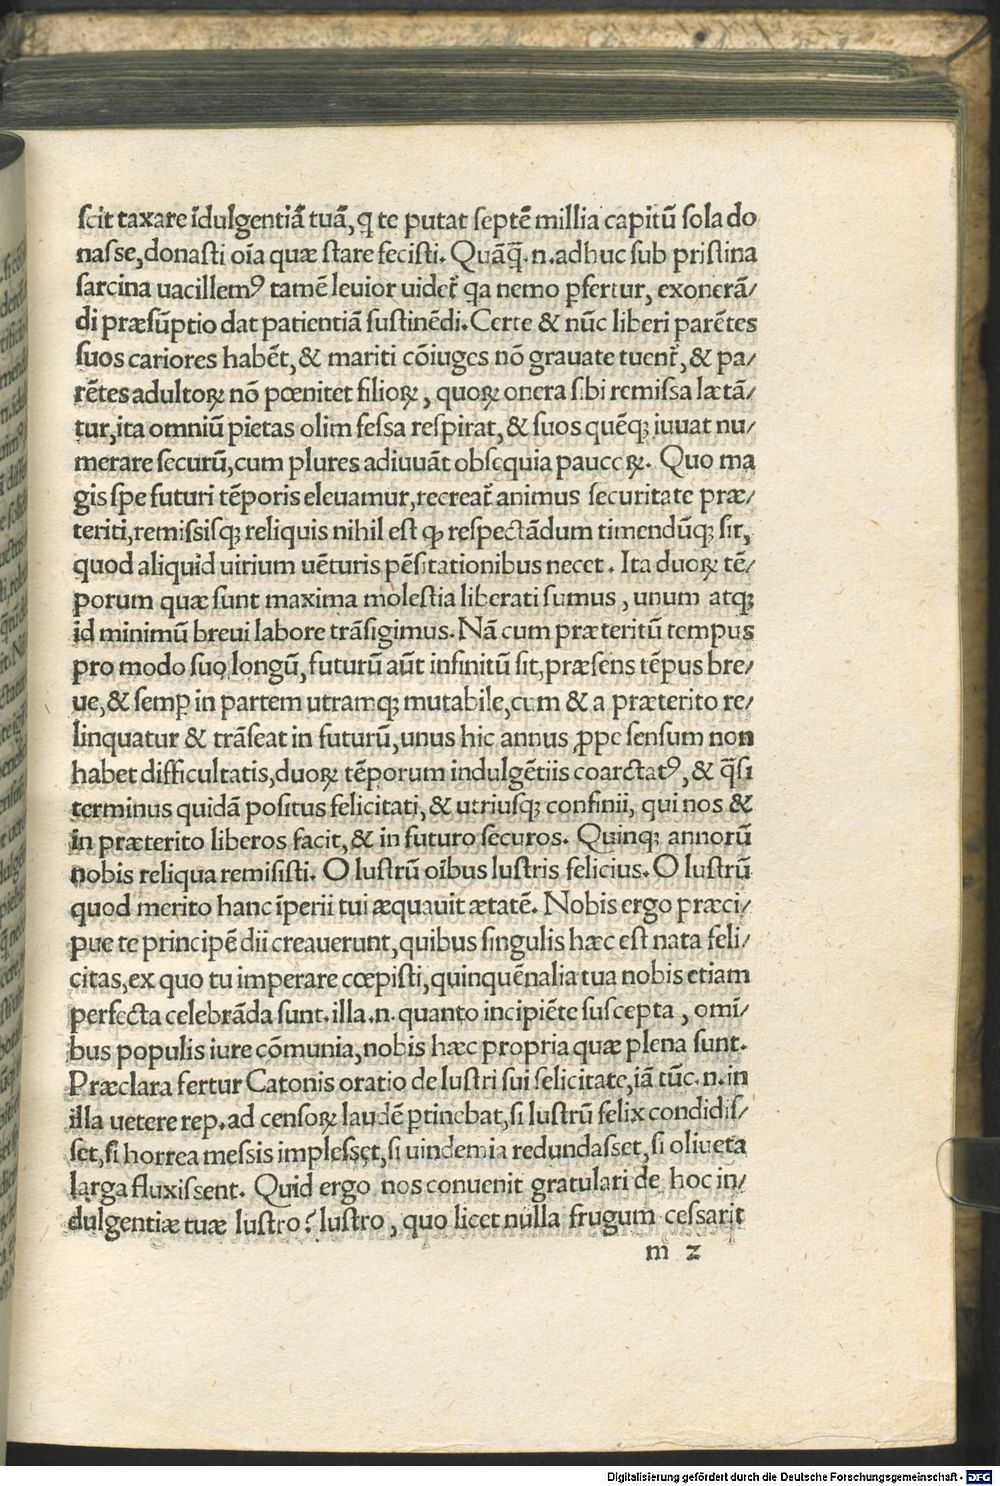 scit taxare īdulgentiā tuā, q te putat septē millia capitū sola do
nasse, donasti oīa quæ stare fecisti. Quāq̄. n. adhuc sub pristina
sarcina uacillemꝰ tamē leuior uidet᷑ qa nemo ꝑfertur, exonerā/
di præsūptio dat patientiā sustinēdi. Certe & nūc liberi parētes
suos cariores habēt, & mariti cōiuges nō grauate tuent᷑, & pa/
rētes adultoꝝ nō pœnitet filioꝝ, quoꝝ onera sibi remissa lætā/
tur, ita omniū pietas olim fessa respirat, & suos quēqꝫ iuuat nu/
merare securū, cum plures adiuuāt obsequia paucoꝝ. Quo ma
gis spe futuri tēporis eleuamur, recreat᷑ animus securitate præ/
teriti, remissisqꝫ reliquis nihil est ꝙ respectādum timendūqꝫ sit,
quod aliquid uirium uēturis pēsitationibus necet. Ita duoꝝ tē/
porum quæ sunt maxima molestia liberati sumus, unum atqꝫ
id minimū breui labore trāsigimus. Nā cum præteritū tempus
pro modo suo longū, futurū aūt infinitū sit, præsens tēpus bre/
ue, & semꝑ in partem utramqꝫ mutabile, cum & a præterito re/
linquatur & trāseat in futurū, unus hic annus ꝓpe sensum non
habet difficultatis, duoꝝ tēporum indulgētiis coarctatꝰ, & q̄si
terminus quidā positus felicitati, & utriusqꝫ confinii, qui nos &
in præterito liberos facit, & in futuro securos. Quinqꝫ annorū
nobis reliqua remisisti. O lustrū oībus lustris felicius. O lustrū
quod merito hanc īperii tui æquauit ætatē. Nobis ergo præci/
pue te principē dii creauerunt, quibus singulis hæc est nata feli/
citas, ex quo tu imperare cœpisti, quinquēnalia tua nobis etiam
perfecta celebrāda sunt. illa. n. quanto incipiēte suscepta, omī/
bus populis iure cōmunia, nobis hæc propria quæ plena sunt.
Præclara fertur Catonis oratio de lustri sui felicitate, iā tūc. n. in
illa uetere rep. ad censoꝝ laudē ꝑtinebat, si lustrū felix condidis/
set, si horrea messis implesset, si uindemia redundasset, si oliueta
larga fluxissent. Quid ergo nos conuenit gratulari de hoc in/
dulgentiæ tuæ lustro? lustro, quo licet nulla frugum cessarit
m 2
Digitalisierung gefördert durch die Deutsche Forschungsgemeinschaft - DFG